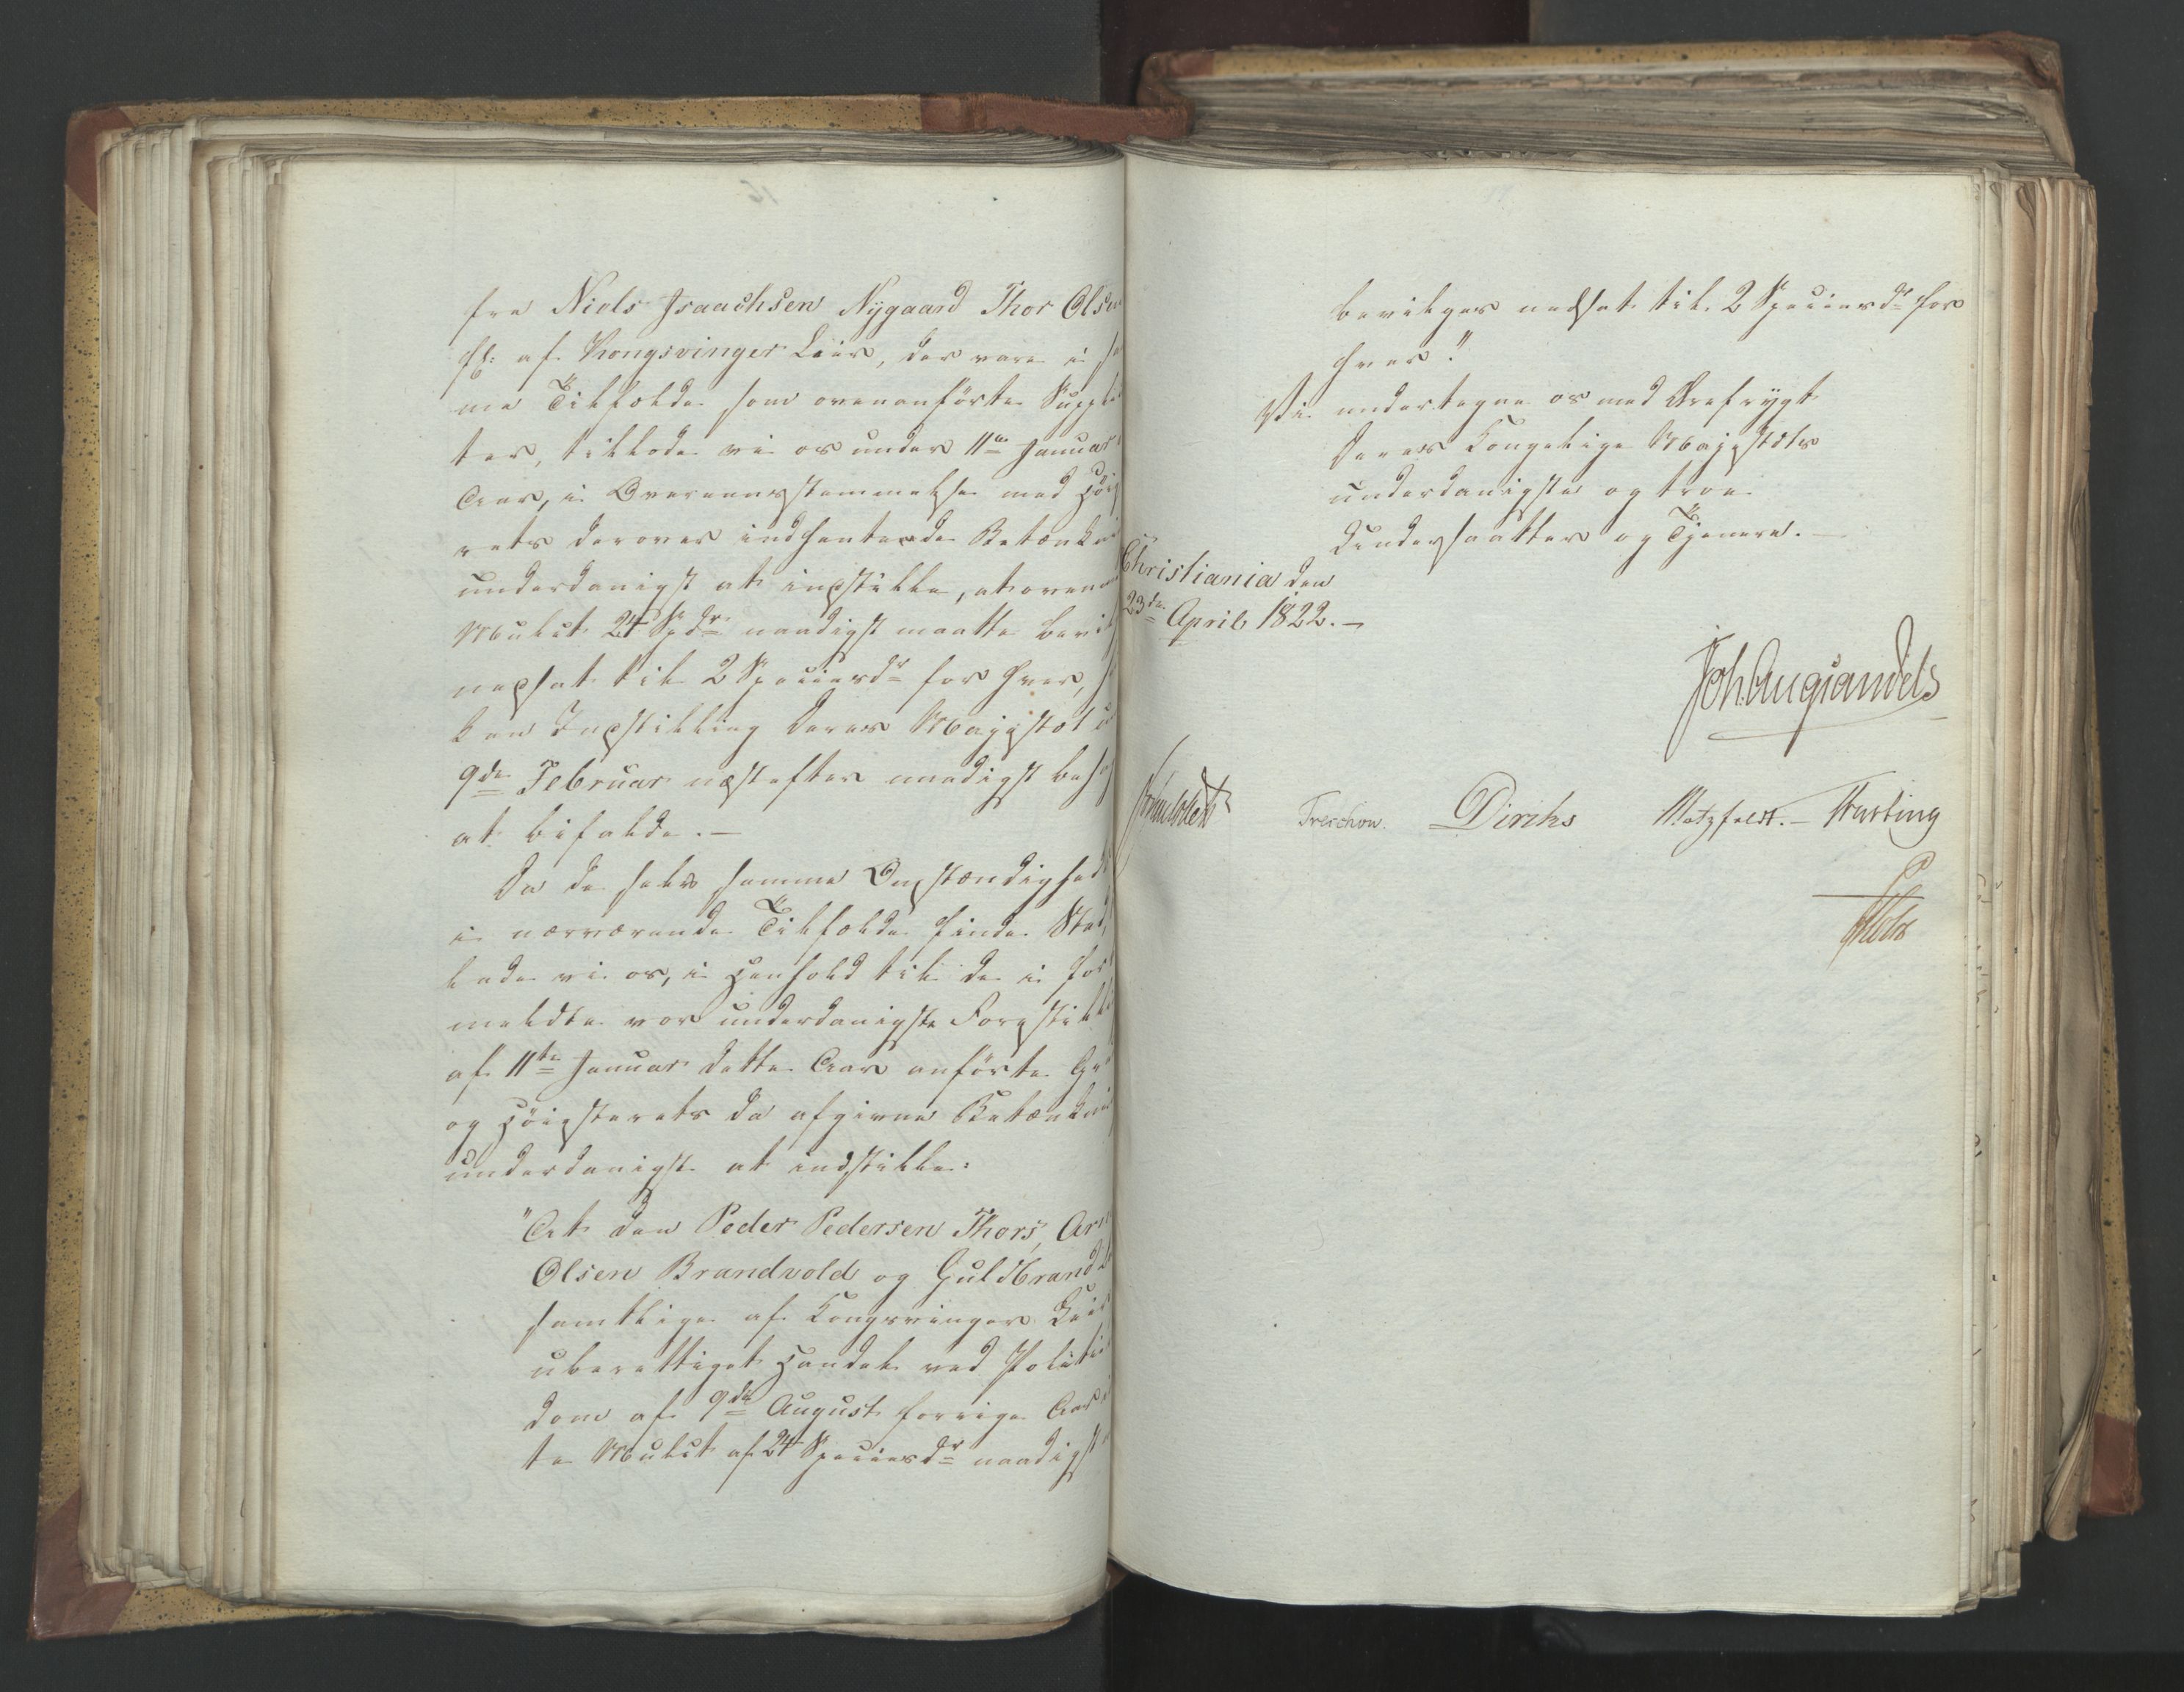 fra Niels Isaachsen Nygaard Thor Olsen
fl: af Kongsvinger Leir, der vare i sa
me Tilfælde som ovenanførte Supplik
ter, tillode vi os under 11te Januar
Aar, i Overeensstemmelse med Høies
rets derover indhentede Betænkni
underdanigst at indstille, at oven
Mulct 24 Spdr naadigst maatte bevil
nedsat til 2 Speciesdr for hver, h
ken Indstilling Deres Majestæt u
9de Februar næstefter naadigst beh
at bifalde. –
Da de selv samme Omstændighed
i nærværende Tilfælde finde Sted,
lade vi os, i Henhold til de i for
meldte vor underdanigste Forestill
af 11te Januar dette Aar anførte Gr
og Høiesterets da afgivne Betænkni
underdanigst at indstille:
"At den Peder Pedersen Thors, Ar
Olsen Brandvold og Guldbrand
samtlige af Kongsvinger Leir
uberettiget Handel ved Politie
dom af 9de August forrige Aar
te Mulct af 24 Speciesdr naadigst
bevilges nedsat til 2 Speciesdr for
hver."
Vi undertegne os med Ærefrygt
Deres Kongelige Majestæts
underdanigste og troe
Undersaatter og Tjenere. –
Christiania den
23de April 1822. –
Joh. Aug Sandels
Treschow. Diriks Motzfeldt. – Fasting
Holst